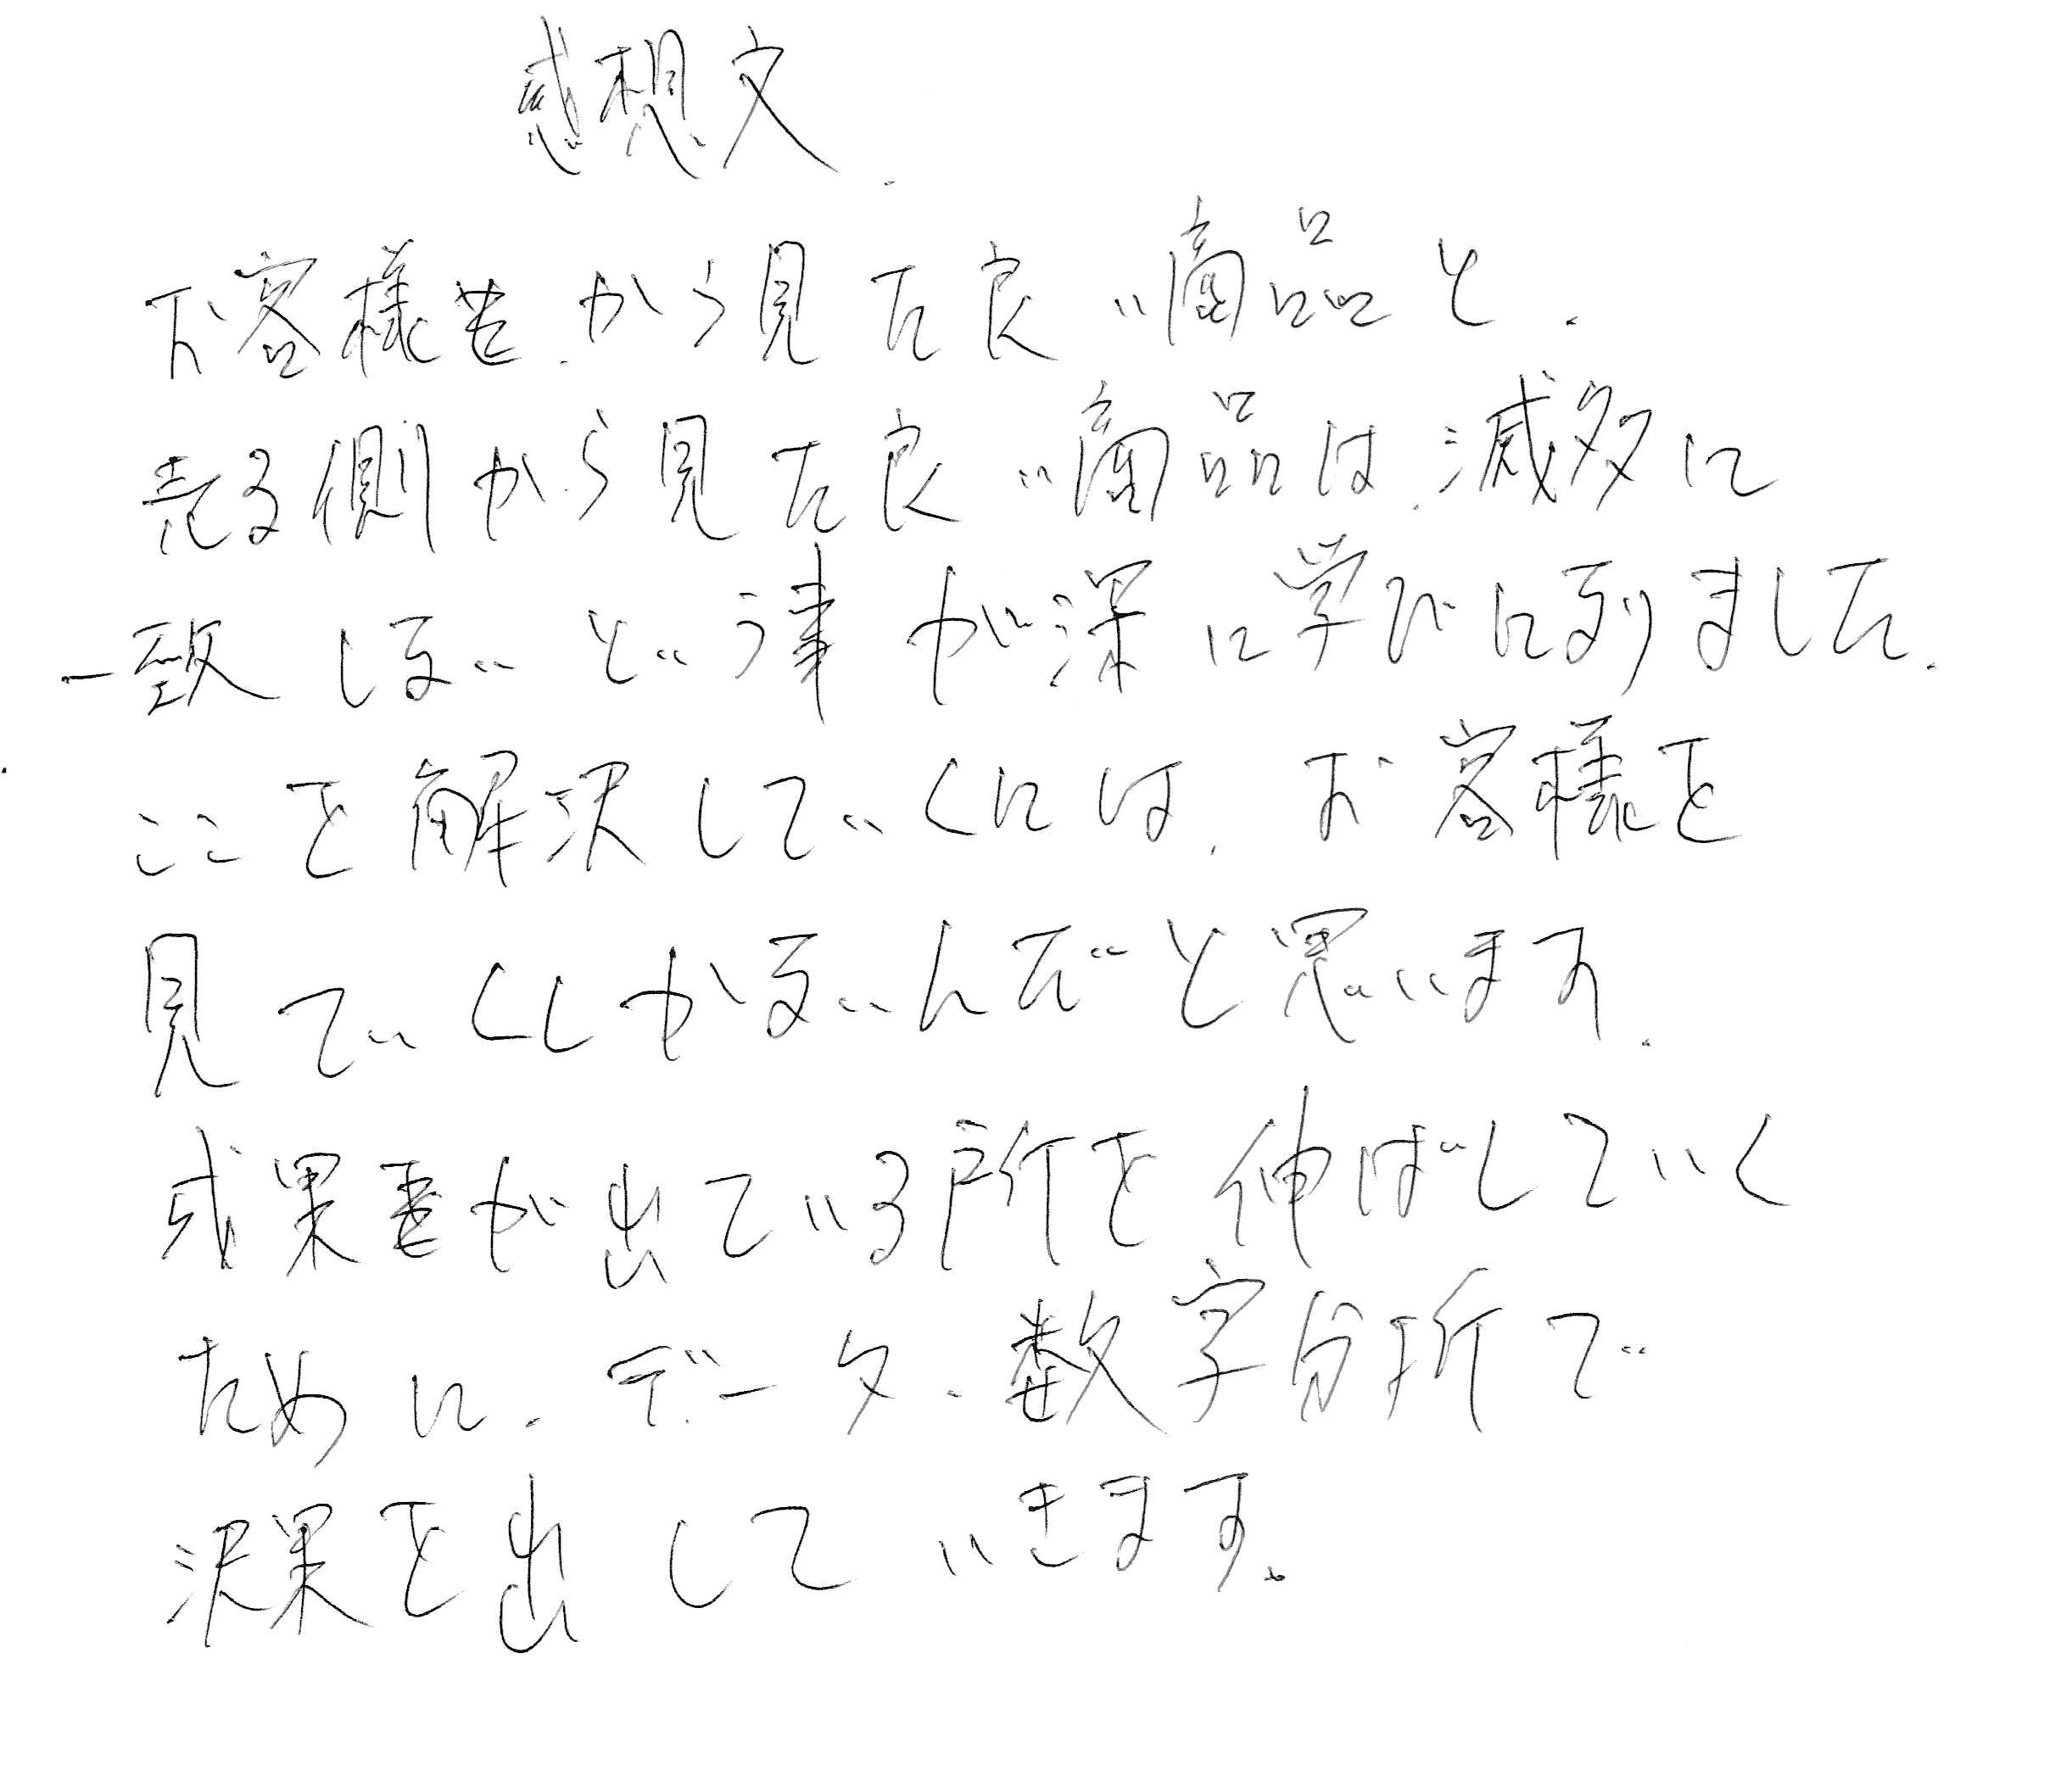 感想文
お客様からから見た良い商品と、
売る側から見た良い商品は、滅多に
一致しないという事が深に学びになりました。
ここを解決していくには、お客様を
見ていくしかないんだと思います。
成果が出ている所を伸ばしていく
ために、データ、数字分析で
決果を出していきます。